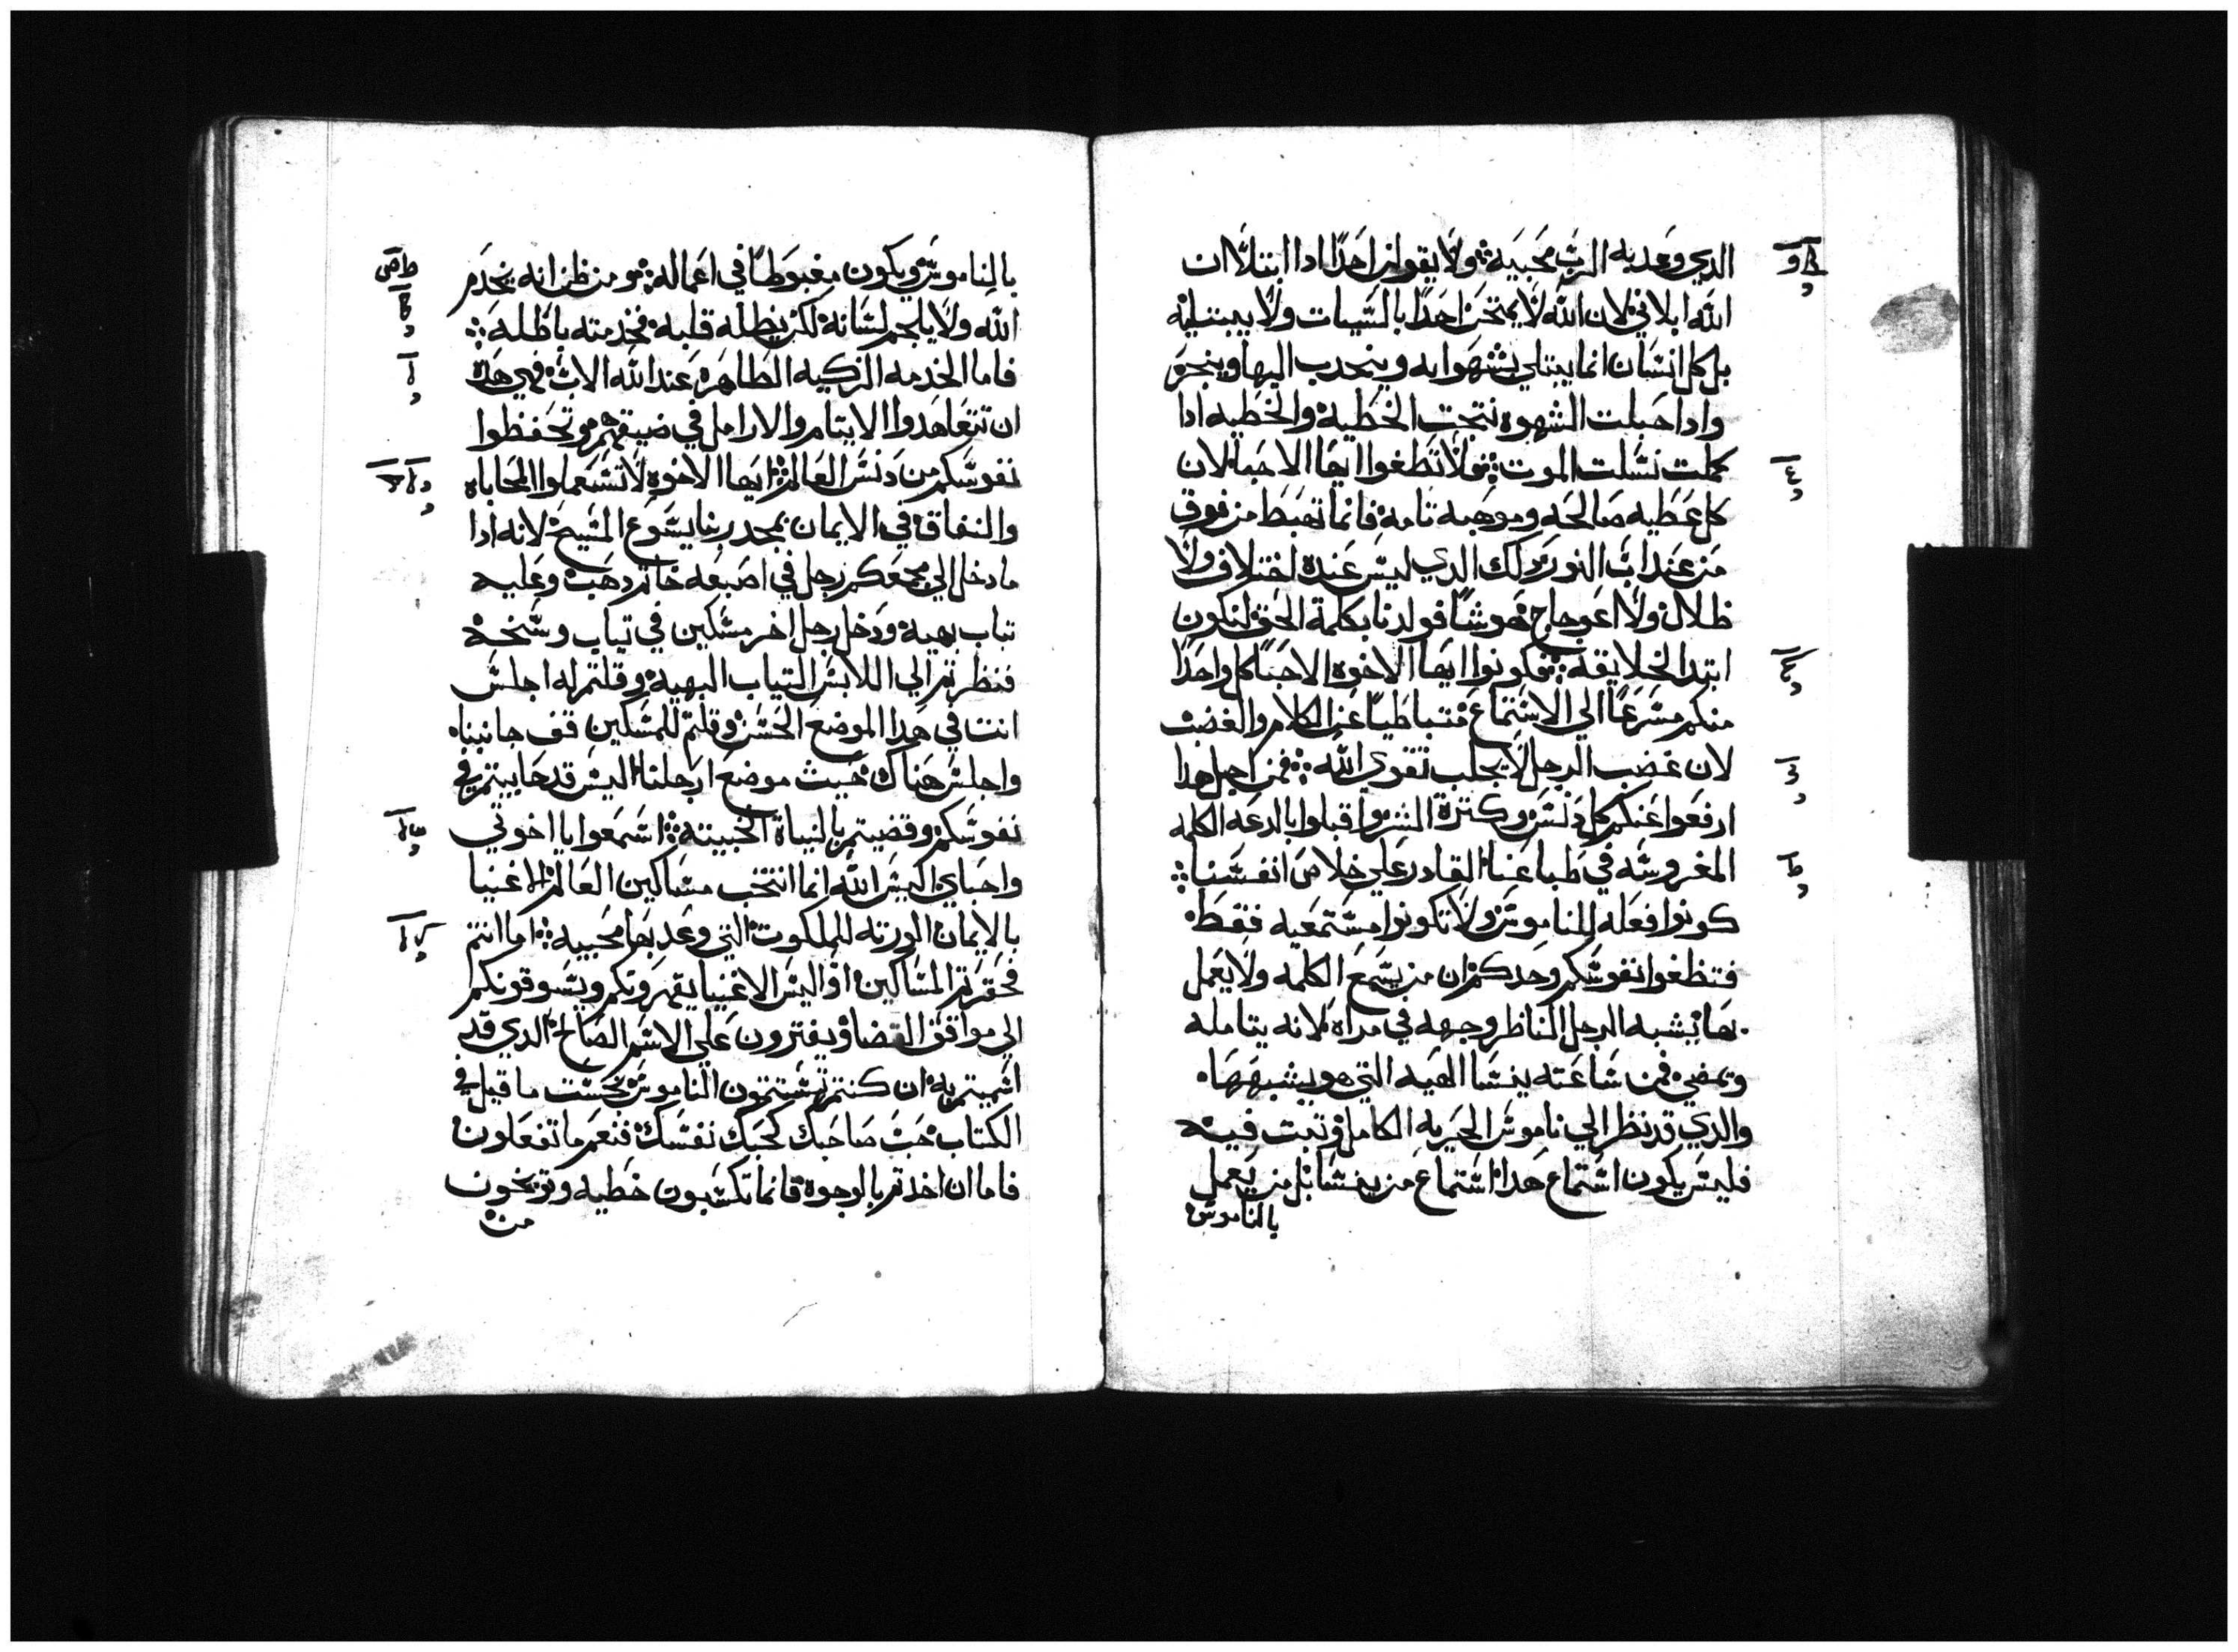 الدي وعد به الرب محبيه ولا يقولن احدًا ادا ابتلا ان
الله ابلاني لان الله لا يمتحن احدًا بالسيات ولا يبتليه
بل كل انسان انما يبتلي بشهواته وينجدب اليها وينجر
وادا حبلت الشهوه نتجت الخطية والخطيه ادا
كملت نسلت الموت ولا تطغوا ايها الاحبا لان
كل عطيه صالحه وموهبه تامة فانما تهبط من فوق
من عند اب النور دلك الدي ليس عنده اختلاف ولا
ظلال ولا اعوجاج هو شا فولدنا بكلمة الحق لنكون
ابتدا لخلايقه فكونوا ايها الاخوه الاحبا كل واحدًا
منكم مسرعًا الي الاستماع متباطيًا عن الكلام والغضب
لان غضب الرجل لا يجلب تقوي الله فمن اجل هدا
ارفعوا عنكم كل دنس وكترة الشر واقبلوا بالدعه الكلمه
المغروسه في طباعنا القادر علي خلاص انفسنا
كونوا فعله للناموس ولا تكونوا مستمعيه فقط
فتطغوا نفوسكم وحدكم ان من يسمع الكلمه ولا يعمل
بها يشبه الرجل الناظر وجهه في مراه لانه يتامله
ويمضي فمن ساعته ينسا الهيه التي هو يشبهها
والدي قد نظر الي ناموس الحريه الكامل وتبت فيه
فليس يكون استماع هدا استماع من ينسا بل من يعمل
بالناموس
بالناموس ويكون مغبوطًا في اعماله ومن ظن انه يخدم
الله ولا يلجم لسانه لكن يظله قلبه فخدمته باطله
فاما الخدمه الزكيه الطاهره عند الله الاب فهي هده
ان تتعاهدوا الايتام والارامل في ضيقهم وتحفظوا
نفوسكم من دنس العالم ايها الاخوه لا تستعملوا المحاباه
والنفاق في الايمان بمجد ربنا يسوع المسيح لانه ادا
ما دخل الي مجمعكم رجل في اصبعه خاتم دهب وعليه
تياب بهية ودخل رجل اخر مسكين في تياب وسخه
فنظرتم الي اللابس التياب البهيه وقلتم له اجلس
انت في هدا الموضع الحسن وقلتم للمسكين قف جانبنا
واجلس هناك حيث موضع ارجلنا اليس قد حابيتم في
نفوسكم وقضيتم بالنياة الخبيته اسمعوا يا اخوتي
واحباي اليس الله انما انتخب مساكين العالم الاغنيا
بالايمان الورته للملكوت التي وعد بها محبيه اما انتم
فحقرتم المساكين او اليس الاغنيا يقهرونكم ويسوقونكم
الي مواقف القضا ويفترون علي الاسم الصالح الدي قد
اسميتم به ان كنتم تستتمون الناموس بحست ما قيل في
الكتاب حب صاحبك كحبك نفسك فنعم ما تفعلون
فاما ان اخدتم بالوجوه فانما تكسبون خطيه وتوبخون
من